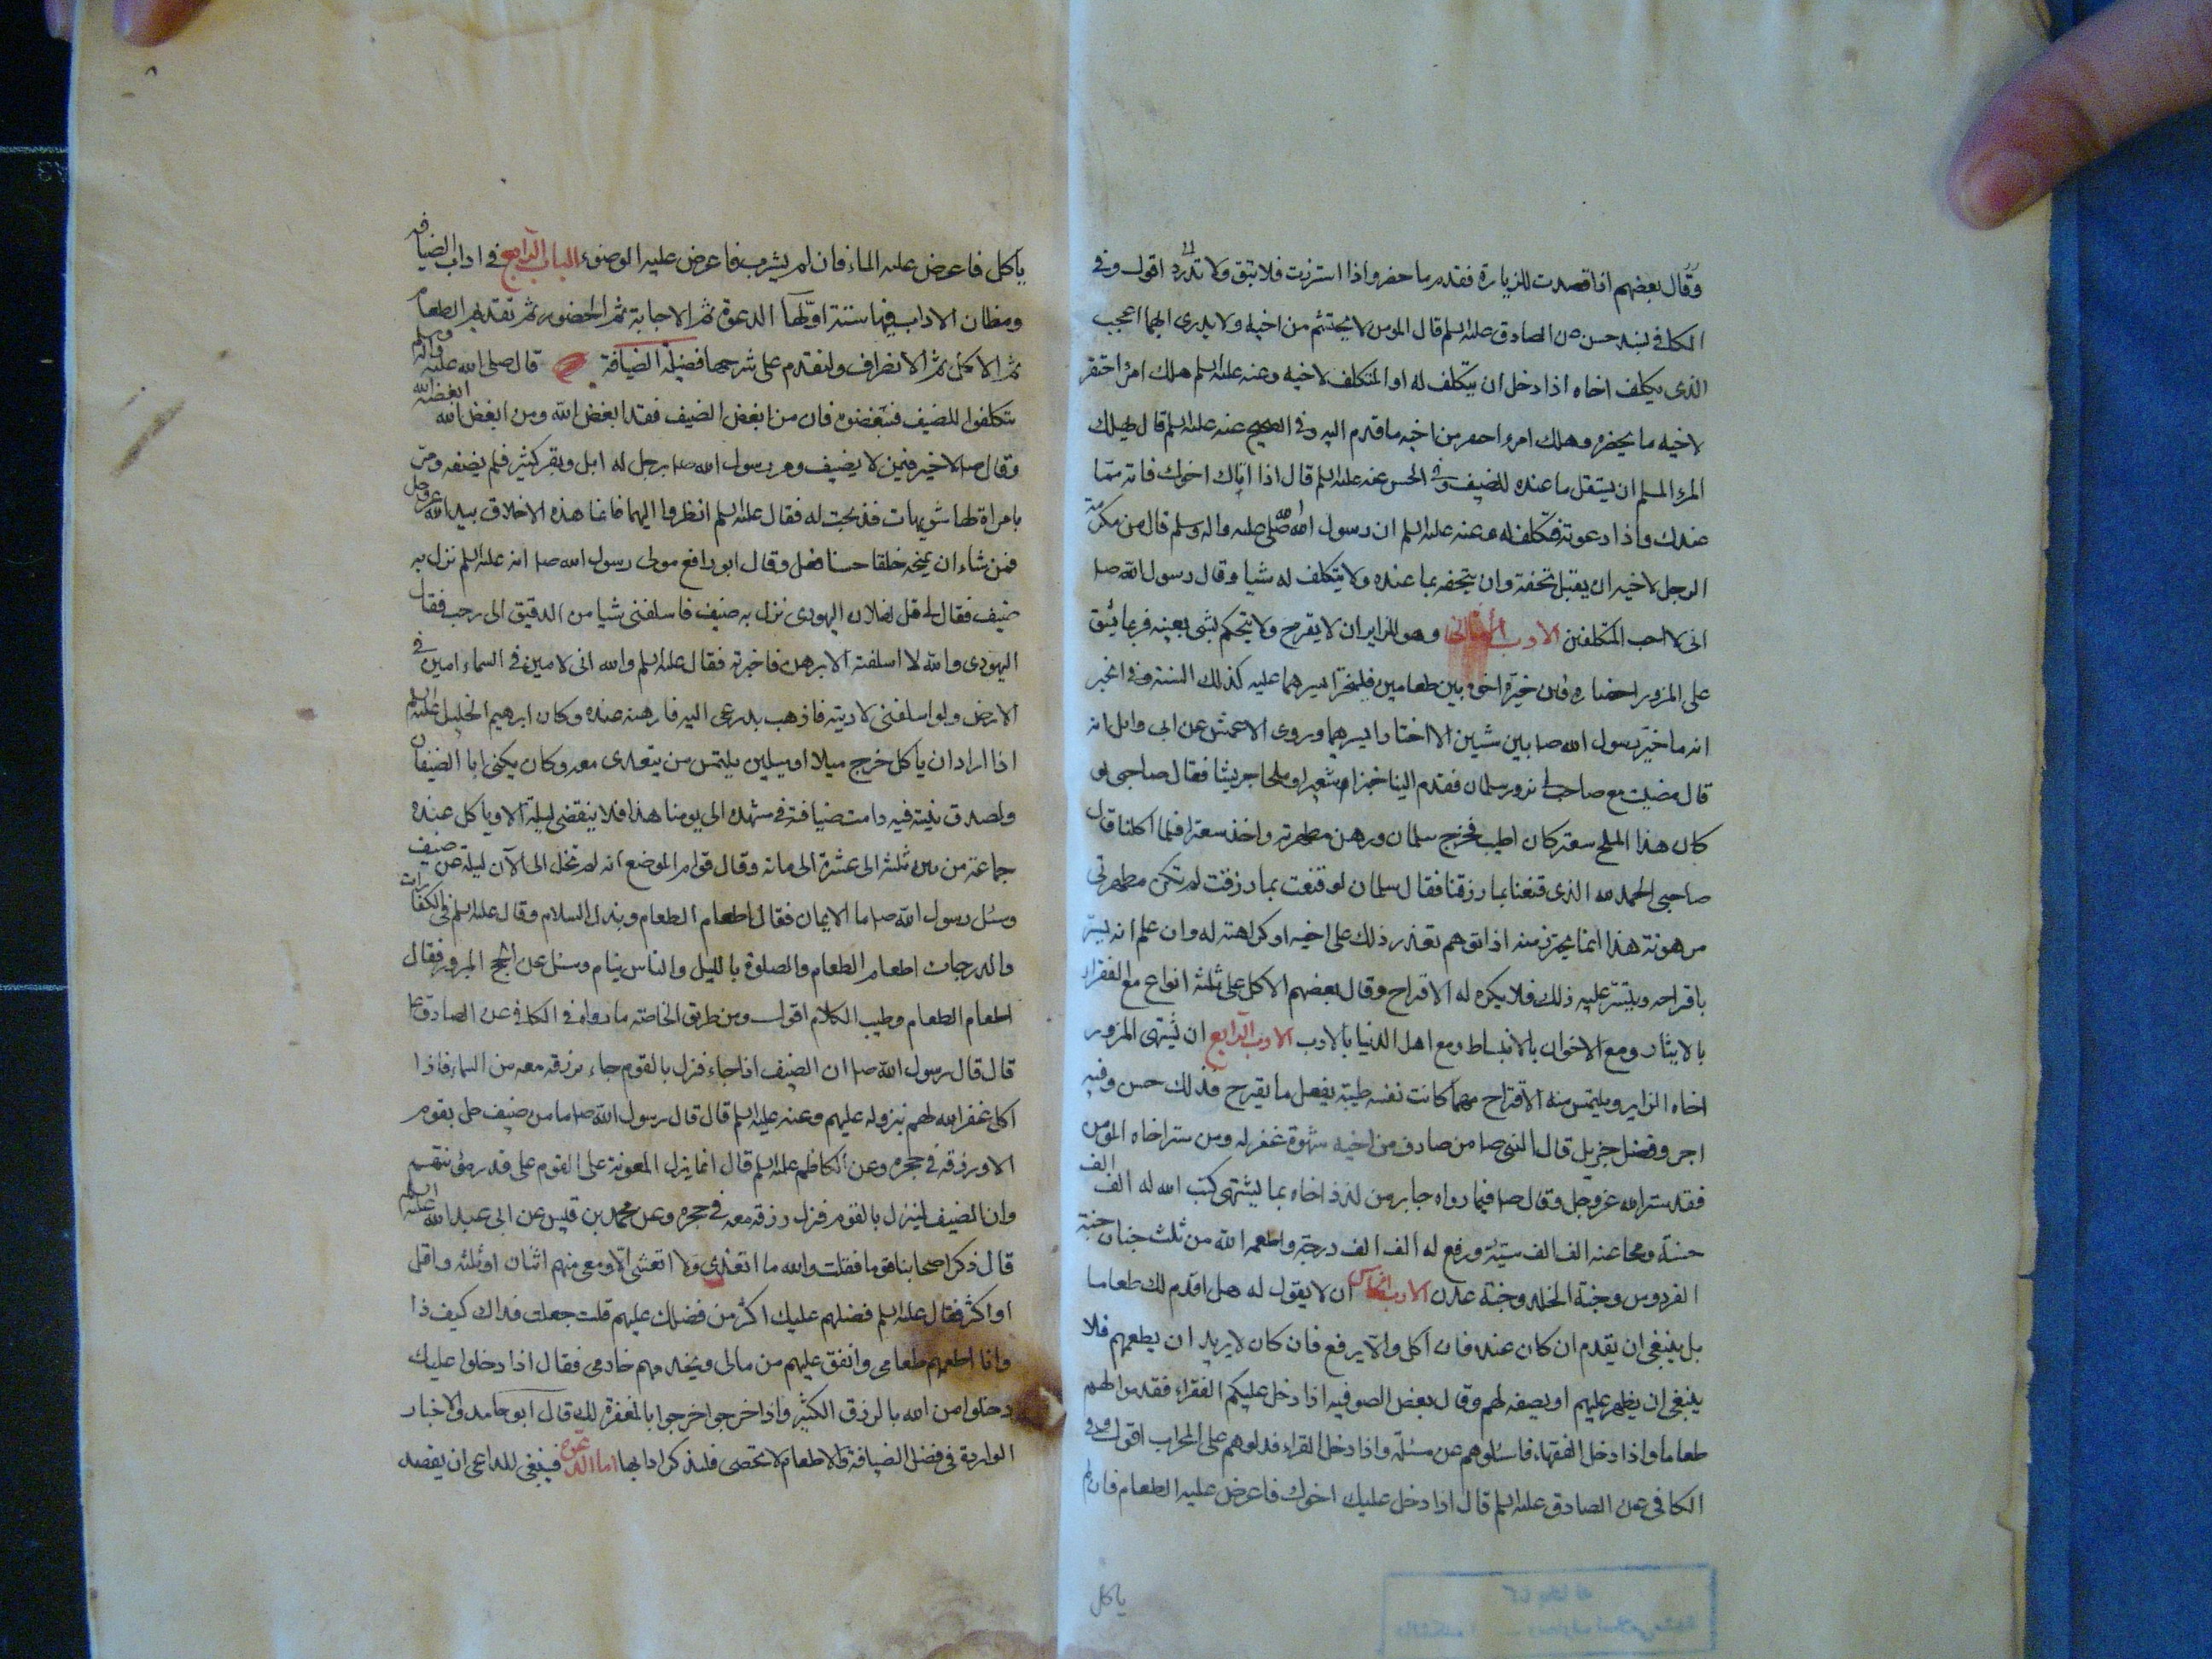 وقال بعضهم اذا قصدت للزيارة فقدم ما حضر واذا استزرت فلا تبق ولا تذر اقول وفي
الكافي بسند حسن عن الصادق عليه السلم قال المومن لا يحتشم من اخيه ولا يدرى ايهما اعجب
الذى يكلف اخاه اذا دخل ان يتكلف له او المتكلف لاخيه وعنه عليه السلم هلك امرؤ احتقر
لاخيه ما يحضره وهلك امرؤ احتقر من اخيه ما قدم اليه وفي الصحيح عنه عليه السلم قال يهلك
المرء المسلم ان يستقل ما عنده للضيف وفي الحسن عنه عليه السلم قال اذا اتاك اخوك فاته مما
عندك واذا دعوته فتكلف له وعنه عليه السلم ان رسول الله صلى الله عليه واله وسلم قال من تكرمة
الرجل لاخيه ان يقبل تحفته وان يتحفه بما عنده ولا يتكلف له شيا وقال رسول الله صلا
انى لا احب المتكلفين الادب الثاني وهو للزاير ان لا يقترح ولا يتحكم بشى بعينه فربما يشق
على المزور احضاره فان خيره اخوه بين طعامين فليختر ايسرهما عليه كذلك السنة وفي الخبر
انه ما خير رسول الله صلا بين شيئين الا اختار ايسرهما وروى الاعمش عن ابى وايل انه
قال مضيت مع صاحب لى نزور سلمان فقدم الينا خبز شعير وملحا جريشا فقال صاحبى لو
كان هذا الملح سعتر كان اطيب فخرج سلمان ورهن مطهرته واخذ سعترا فلما اكلنا قال
صاحبى الحمد لله الذى قنعنا بما رزقنا فقال سلمان لو قنعت بما رزقت لم تكن مطهرتى
مرهونة هذا انما يحترز منه اذا توهم تعذر ذلك على اخيه او كراهته له وان علم انه يسر
باقتراحه ويتيسر عليه ذلك فلا يكره له الاقتراح وقال بعضهم الاكل على ثلثة انواع مع الفقراء
بالايثار ومع الاخوان بالانبساط ومع اهل الدنيا بالادب الادب الرابع ان يشهى المزور
اخاه الزاير ويلتمس منه الاقتراح مهما كانت نفسه طيبة بفعل ما يقترح فذلك حسن وفيه
اجر وفضل جزيل قال النبى صلا من صادف من اخيه شهوة غفر له ومن ستر اخاه المومن
فقد ستر الله عز وجل وقال صلا فيما رواه جابر من لذذ اخاه بما يشتهى كتب الله له الف الف
حسنة ومحا عنه الف الف سيئة ورفع له الف الف درجة واطعمه الله من ثلث جنان جنة
الفردوس وجنة الخلد وجنة عدن الادب الخامس ان لا يقول له هل اقدم لك طعاما
بل ينبغى ان يقدم ان كان عنده فان اكل والا يرفع فان كان لا يريد ان يطعمهم فلا
ينبغى ان يظهر عليهم او يصفه لهم وقال بعض الصوفيه اذا دخل عليكم الفقراء فقدموا لهم
طعاما واذا دخل الفقهاء فاسئلوهم عن مسئلة واذا دخل القراء فدلوهم على المحراب اقول وفي
الكافى عن الصادق عليه السلم قال اذا دخل عليك اخوك فاعرض عليه الطعام فان لم
ياكل
يأكل فاعرض عليه الماء فان لم يشرب فاعرض عليه الوضوء الباب الرابع في اداب الضيافه
ومظان الاداب فيها ستة اولها الدعوة ثم الاجابة ثم الحضور ثم تقديم الطعام
ثم الاكل ثم الانصراف ولنقدم على شرحها فضيلة الضيافة قال صلى الله عليه واله وسلم
تتكلفوا للضيف فتبغضوه فان من ابغض الضيف فقد ابغض الله ومن ابغض الله ابغضه الله
وقال صلا لا خير فيمن لا يضيف ومر رسول الله صلا برجل له ابل وبقر كثير فلم يضفه ومر
بامراة لها شويهات فذبحت له فقال عليه السلم انظروا اليهما فانما هذه الاخلاق بيد الله عز وجل
فمن شاء ان يمنحه خلقا حسنا فعل وقال ابو رافع مولى رسول الله صلا انه عليه السلم نزل به
ضيف فقال لى قل لفلان اليهودى نزل به ضيف فاسلفنى شيا من الدقيق الى رجب فقال
اليهودى والله لا اسلفته الا برهن فاخبرته فقال عليه السلم والله انى لامين في السماء امين في
الارض ولو اسلفنى لاديته فاذهب بدرعى اليه فارهنه عنده وكان ابرهيم الخليل عليه السلم
اذا اراد ان ياكل خرج ميلا او ميلين يلتمس من يتغدى معه وكان يكنى ابا الضيفان
ولصدق نيته فيه دامت ضيافته في مشهده الى يومنا هذا فلا ينقضى ليلة الا وياكل عنده
جماعة من بين ثلثة الى عشرة الى مائة وقال قوام الموضع انه لم تخل الى الآن ليلة عن ضيف
وسئل رسول الله صلا ما الايمان فقال اطعام الطعام وبذل السلام وقال عليه السلم في الكفارات
والدرجات اطعام الطعام والصلوة بالليل والناس نيام وسئل عن الحج المبرور فقال
اطعام الطعام وطيب الكلام اقول ومن طريق الخاصة ما رواه في الكافى عن الصادق ع
قال قال رسول الله صلا ان الضيف اذا جاء فنزل بالقوم جاء برزقه معه من السماء فاذا
اكل غفر الله لهم بنزوله عليهم وعنه عليه السلم قال قال رسول الله صلا ما من ضيف حل بقوم
الا ورزقه في حجره وعن الكاظم عليه السلم قال انما ينزل المعونة على القوم على قدر مؤنتهم
وان الضيف لينزل بالقوم فنزل رزقه معه في حجره وعن محمد بن قيس عن ابى عبد الله عليه السلم
قال ذكر اصحابنا قوما فقلت والله ما اتغدى ولا اتعشى الا ومعى منهم اثنان او ثلثه واقل
او اكثر فقال عليه السلم فضلهم عليك اكثر من فضلك عليهم قلت جعلت فداك كيف ذا
وانا اطعمهم طعامى وانفق عليهم من مالى ويخدمهم خادمى فقال اذا دخلوا عليك
دخلوا من الله بالرزق الكثير واذا خرجوا خرجوا بالمغفرة لك قال ابو حامد والاخبار
الواردة في فضل الضيافة والاطعام لا تحصى فلنذكر ادابها اما الدعوة فينبغى للداعى ان يقصد